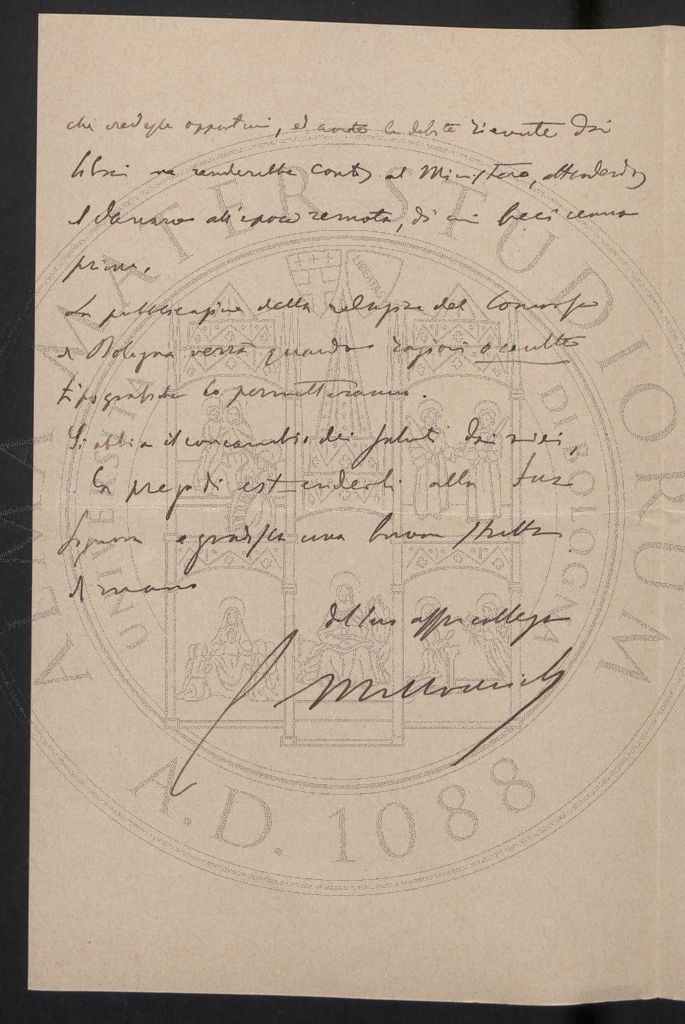 che credesse opportuni, ed avute le debite ricevute dai
librai ne renderebbe conto al Ministero, attendendo
il danaro all'epoca remota, di cui feci cenno
prima.
La pubblicazione della relazione del Concorso
di Bologna verrà quando ragioni occulte
tipografiche lo permetteranno.
Si abbia il contracambio dei saluti dai miei,
La prego di estenderli alla Sua
Signora e gradisca una buona stretta
di mano
del suo affmo collega
ALMA MATER STUDIORUM
UNIVERSITÀ DI BOLOGNA
A.D. 1088